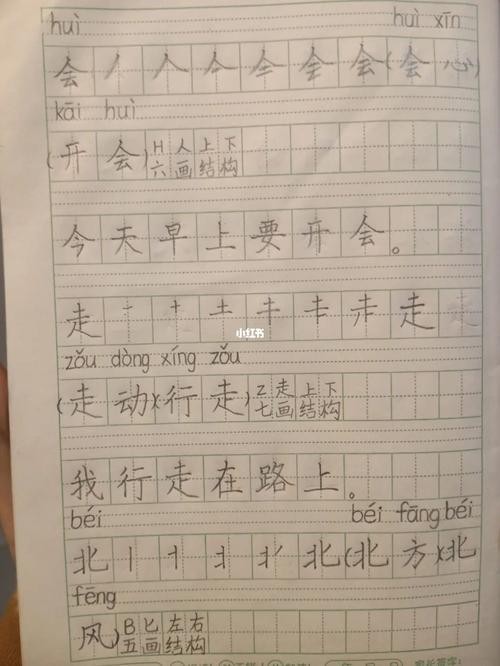 huì huì xīn
会 丿 人 亼 会 会 (会 心
kāi huì
(开 会) H 人 上 下
六 画 结 构
今 天 早 上 要 开 会 。
走 一 十 土 走 走
小红书
zǒu dòng xíng zǒu
(走 动)(行 走) Z 走 上 下
七 画 结 构
我 行 走 在 路 上 。
béi béi fāng béi
北 丨 北 (北 方)(北
fēng
风) B 匕 左 右
五 画 结 构